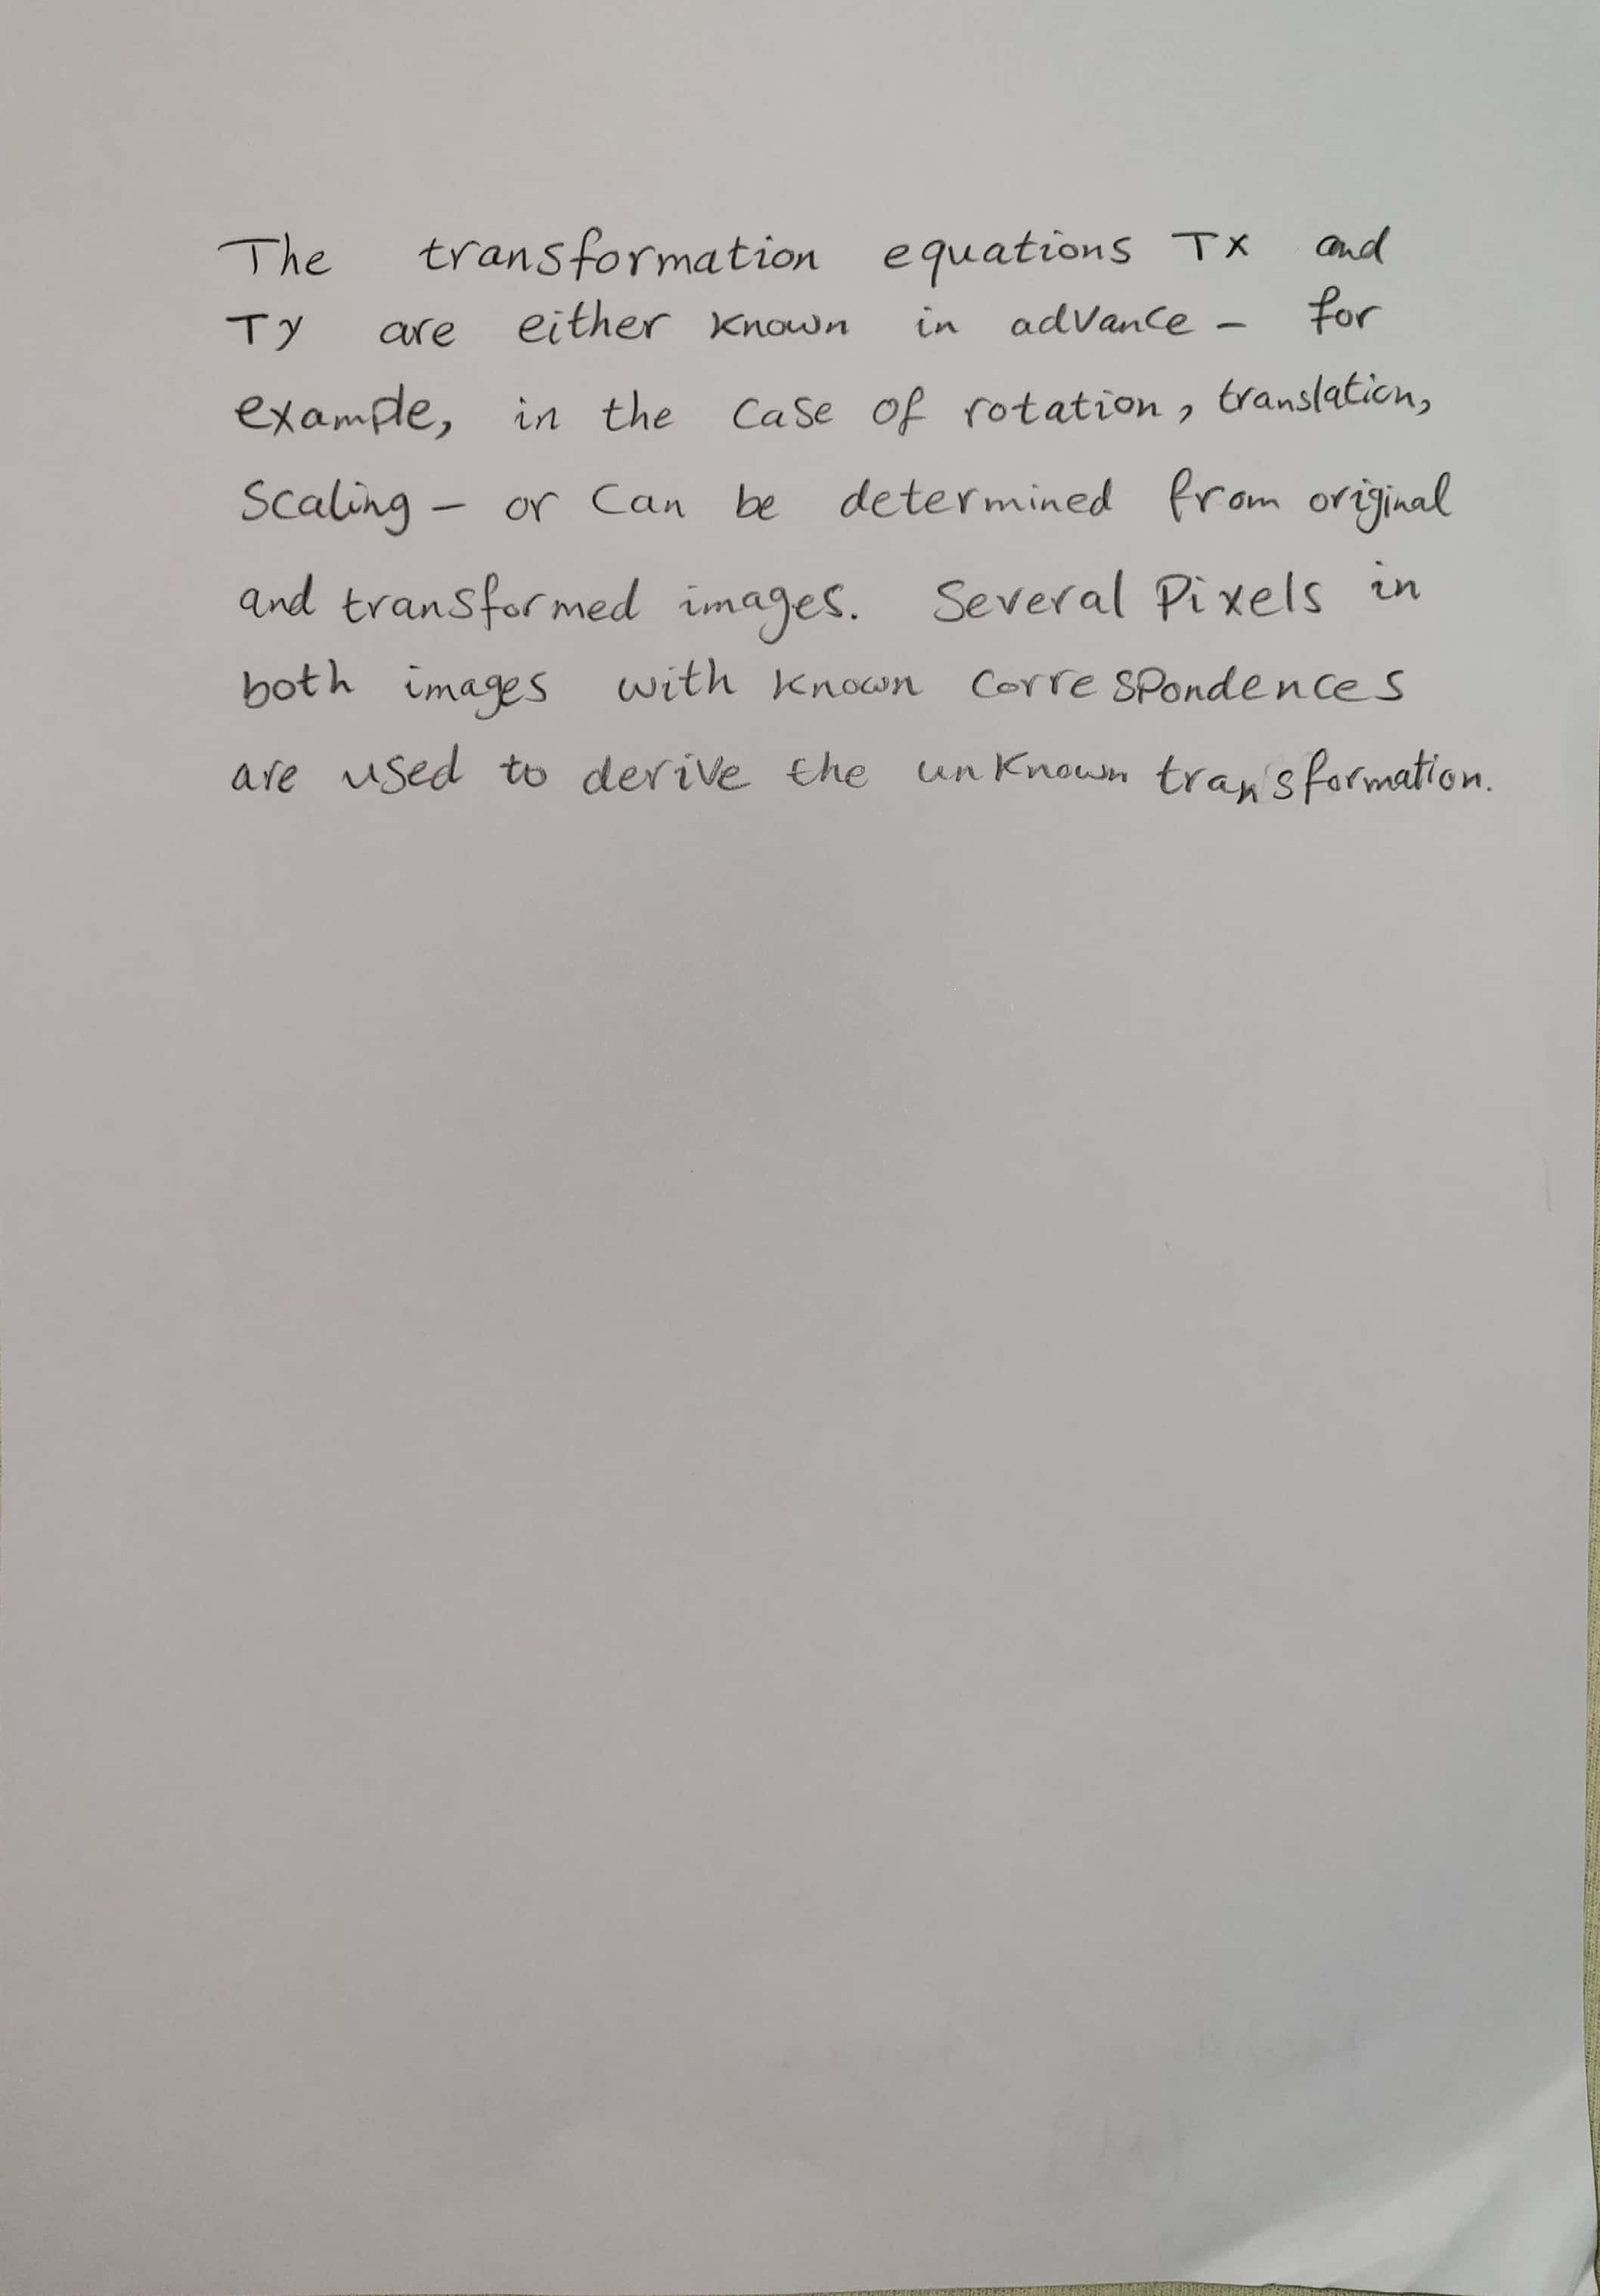 The transformation equations Tx and
Ty are either known in advance - for
example, in the case of rotation, translation,
scaling - or can be determined from original
and transformed images. Several Pixels in
both images with known correspondences
are used to derive the unknown transformation.